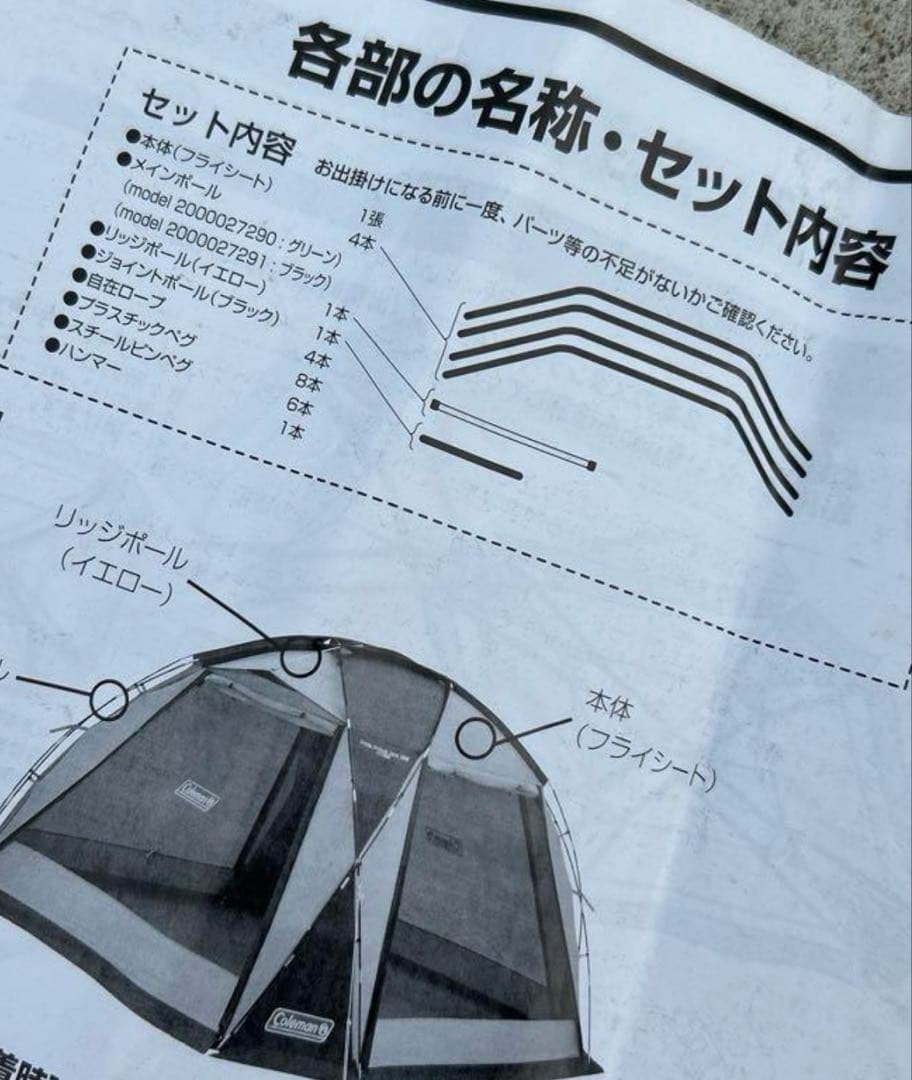 各部の名称・セット内容
セット内容
お出掛けになる前に一度、パーツ等の不足がないかご確認ください。
●本体(フライシート) 1張
●メインポール 4本
(model 2000027290：グリーン)
(model 2000027291：ブラック)
●リッジポール(イエロー) 1本
●ジョイントポール(ブラック) 1本
●自在ロープ 4本
●プラスチックペグ 8本
●スチールピンペグ 6本
●ハンマー 1本
リッジポール
(イエロー)
ル
本体
(フライシート)
Coleman
Coleman
着時